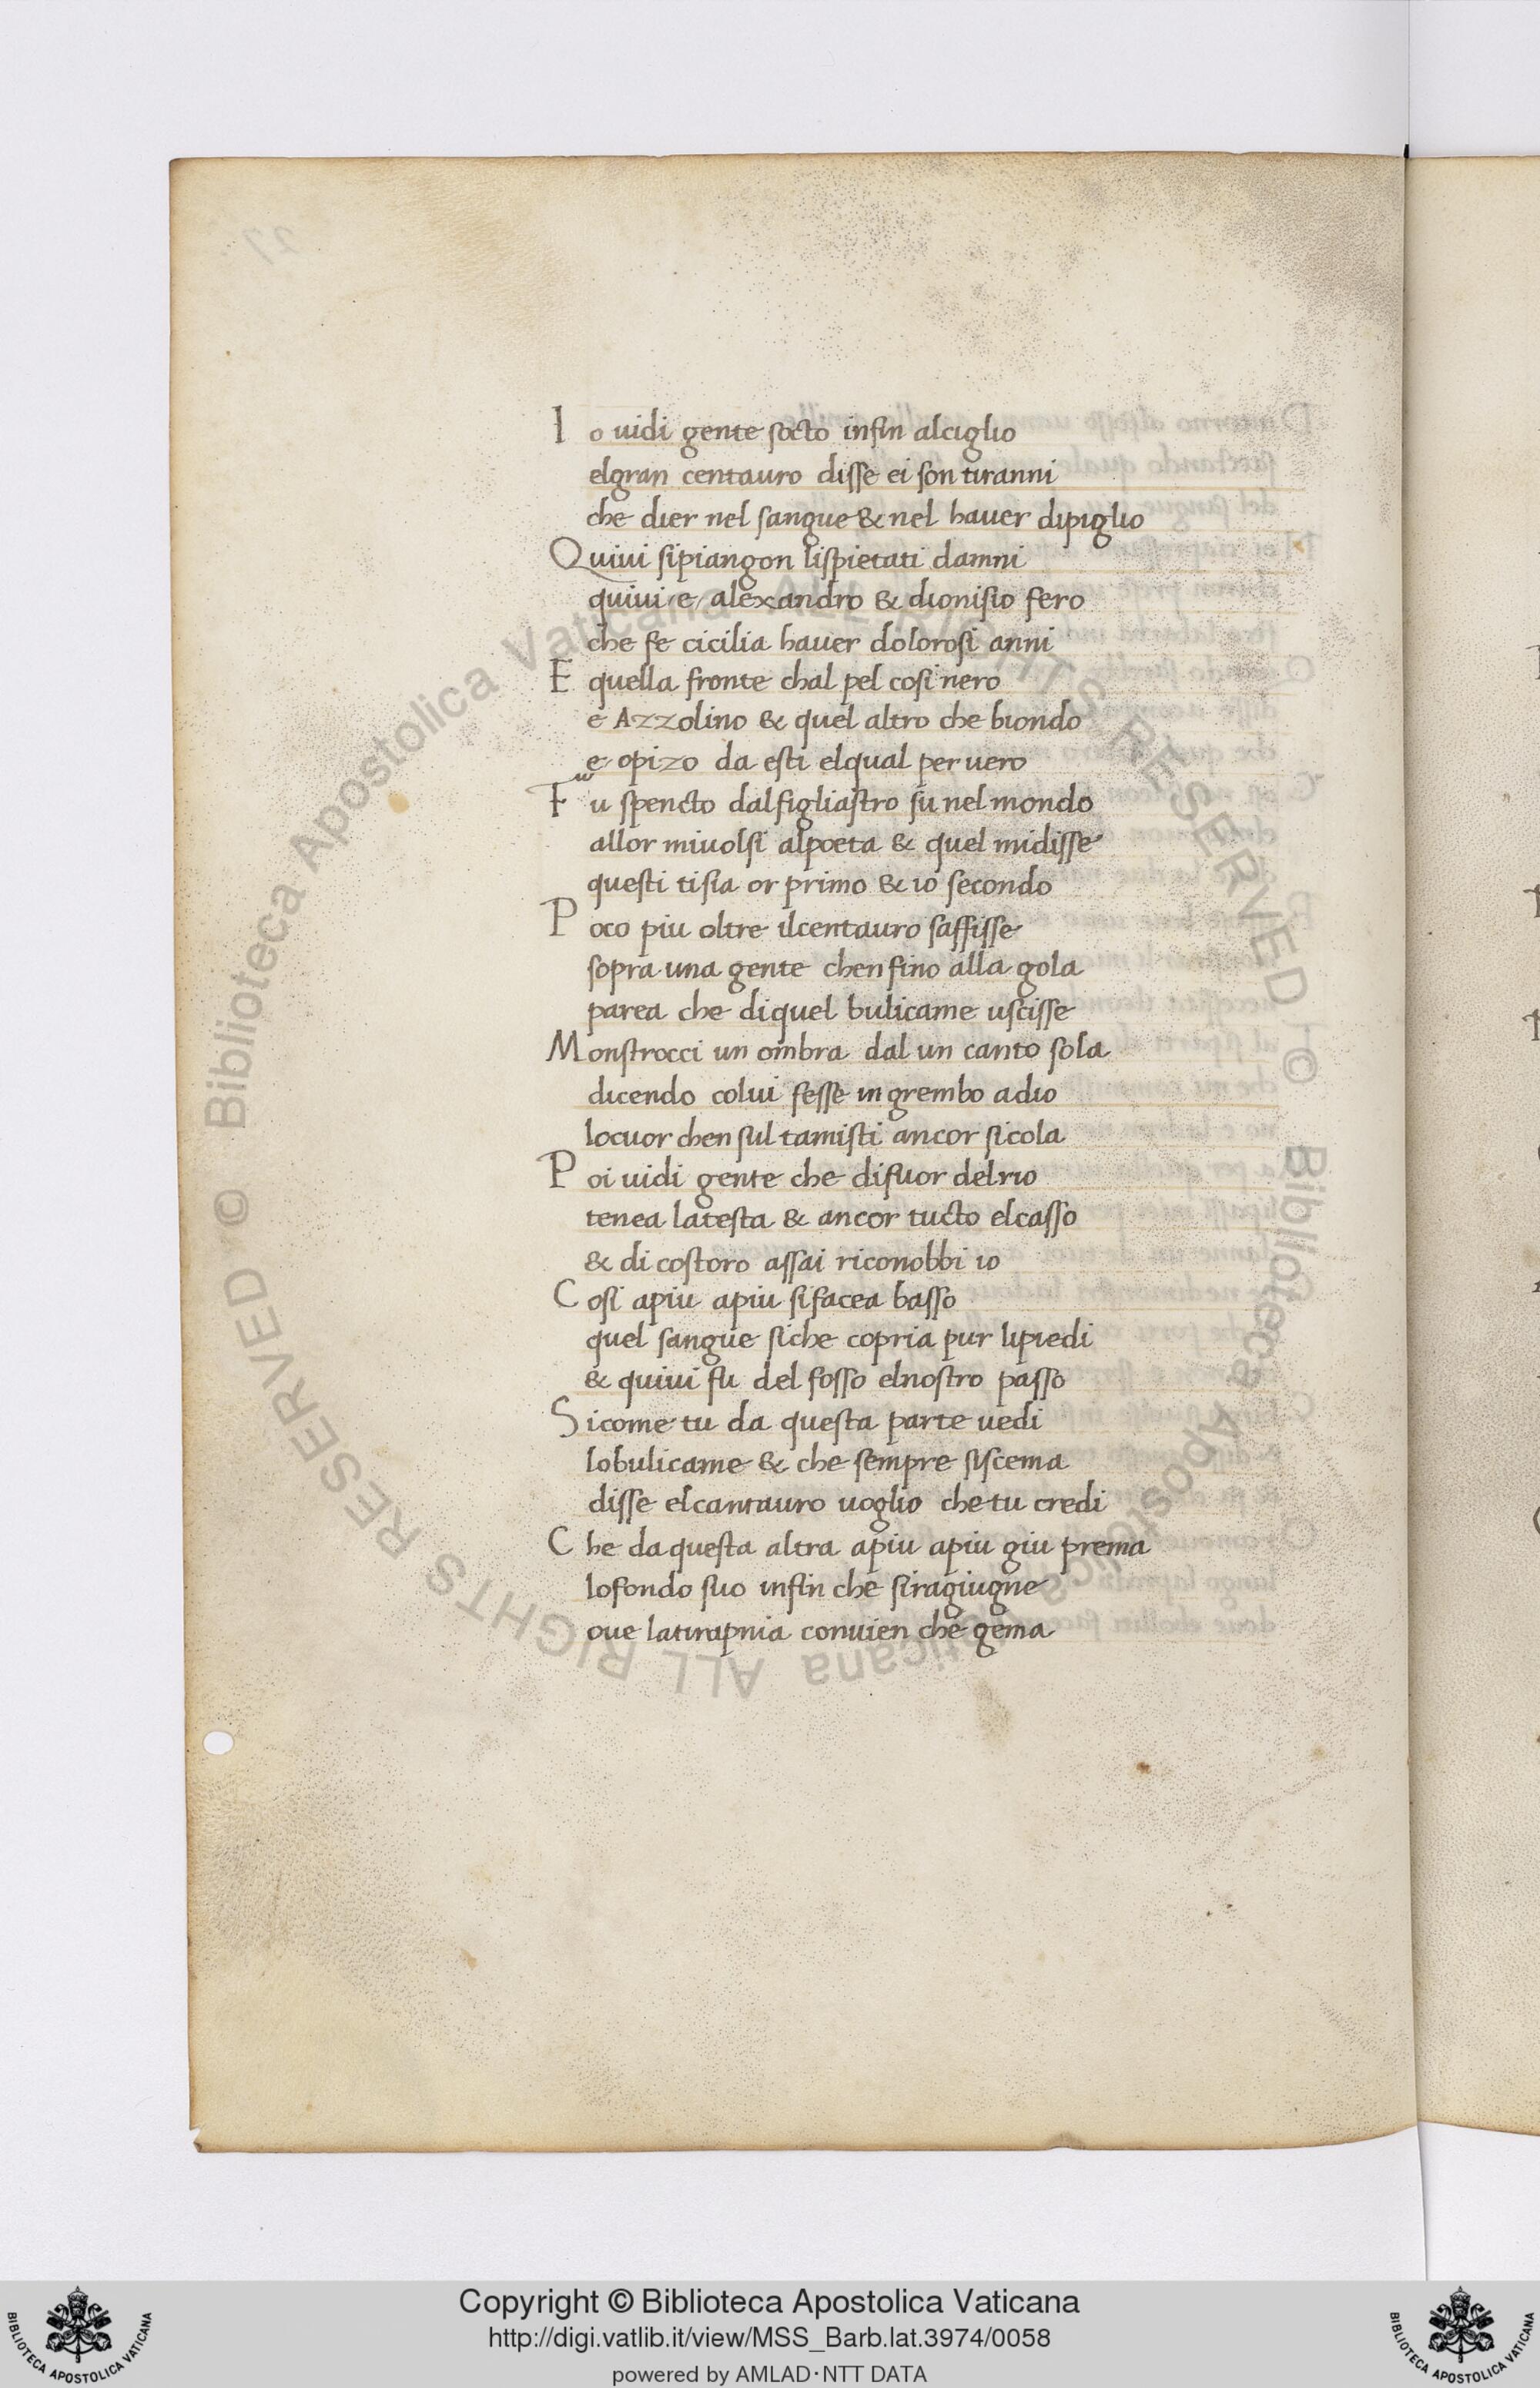 Io uidi gente socto infin alciglio
elgran centauro disse ei son tiranni
che dier nel sangue & nel hauer dipiglio
Quiui sipiangon lispietati damni
quiui e alexandro & dionisio fero
che fe cicilia hauer dolorosi anni
E quella fronte chal pel cosi nero
e Azzolino & quel altro che biondo
e opizo da esti elqual per uero
Fu spencto dalfigliastro su nel mondo
allor miuolsi alpoeta & quel midisse
questi tisia or primo & io secondo
Poco piu oltre ilcentauro saffisse
sopra una gente chenfino alla gola
parea che diquel bulicame uscisse
Monstrocci un ombra dal un canto sola
dicendo colui fesse in grembo adio
locuor chen sul tamisti ancor sicola
Poi uidi gente che difuor delrio
tenea latesta & ancor tucto elcasso
& di costoro assai riconobbi io
Cosi apiu apiu sifacea basso
quel sangue siche copria pur lipiedi
& quiui fu del fosso elnostro passo
Sicome tu da questa parte uedi
lobulicame & che sempre siscema
disse elcantauro uoglio che tu credi
Che daquesta altra apiu apiu giu prema
lofondo suo infin che siragiugne
oue latirapnia conuien che gema
Biblioteca Apostolica Vaticana ALL RIGHTS RESERVED ©
Biblioteca Apostolica Vaticana ALL RIGHTS RESERVED ©
Copyright © Biblioteca Apostolica Vaticana
http://digi.vatlib.it/view/MSS_Barb.lat.3974/0058
powered by AMLAD·NTT DATA
BIBLIOTECA APOSTOLICA VATICANA
BIBLIOTECA APOSTOLICA VATICANA